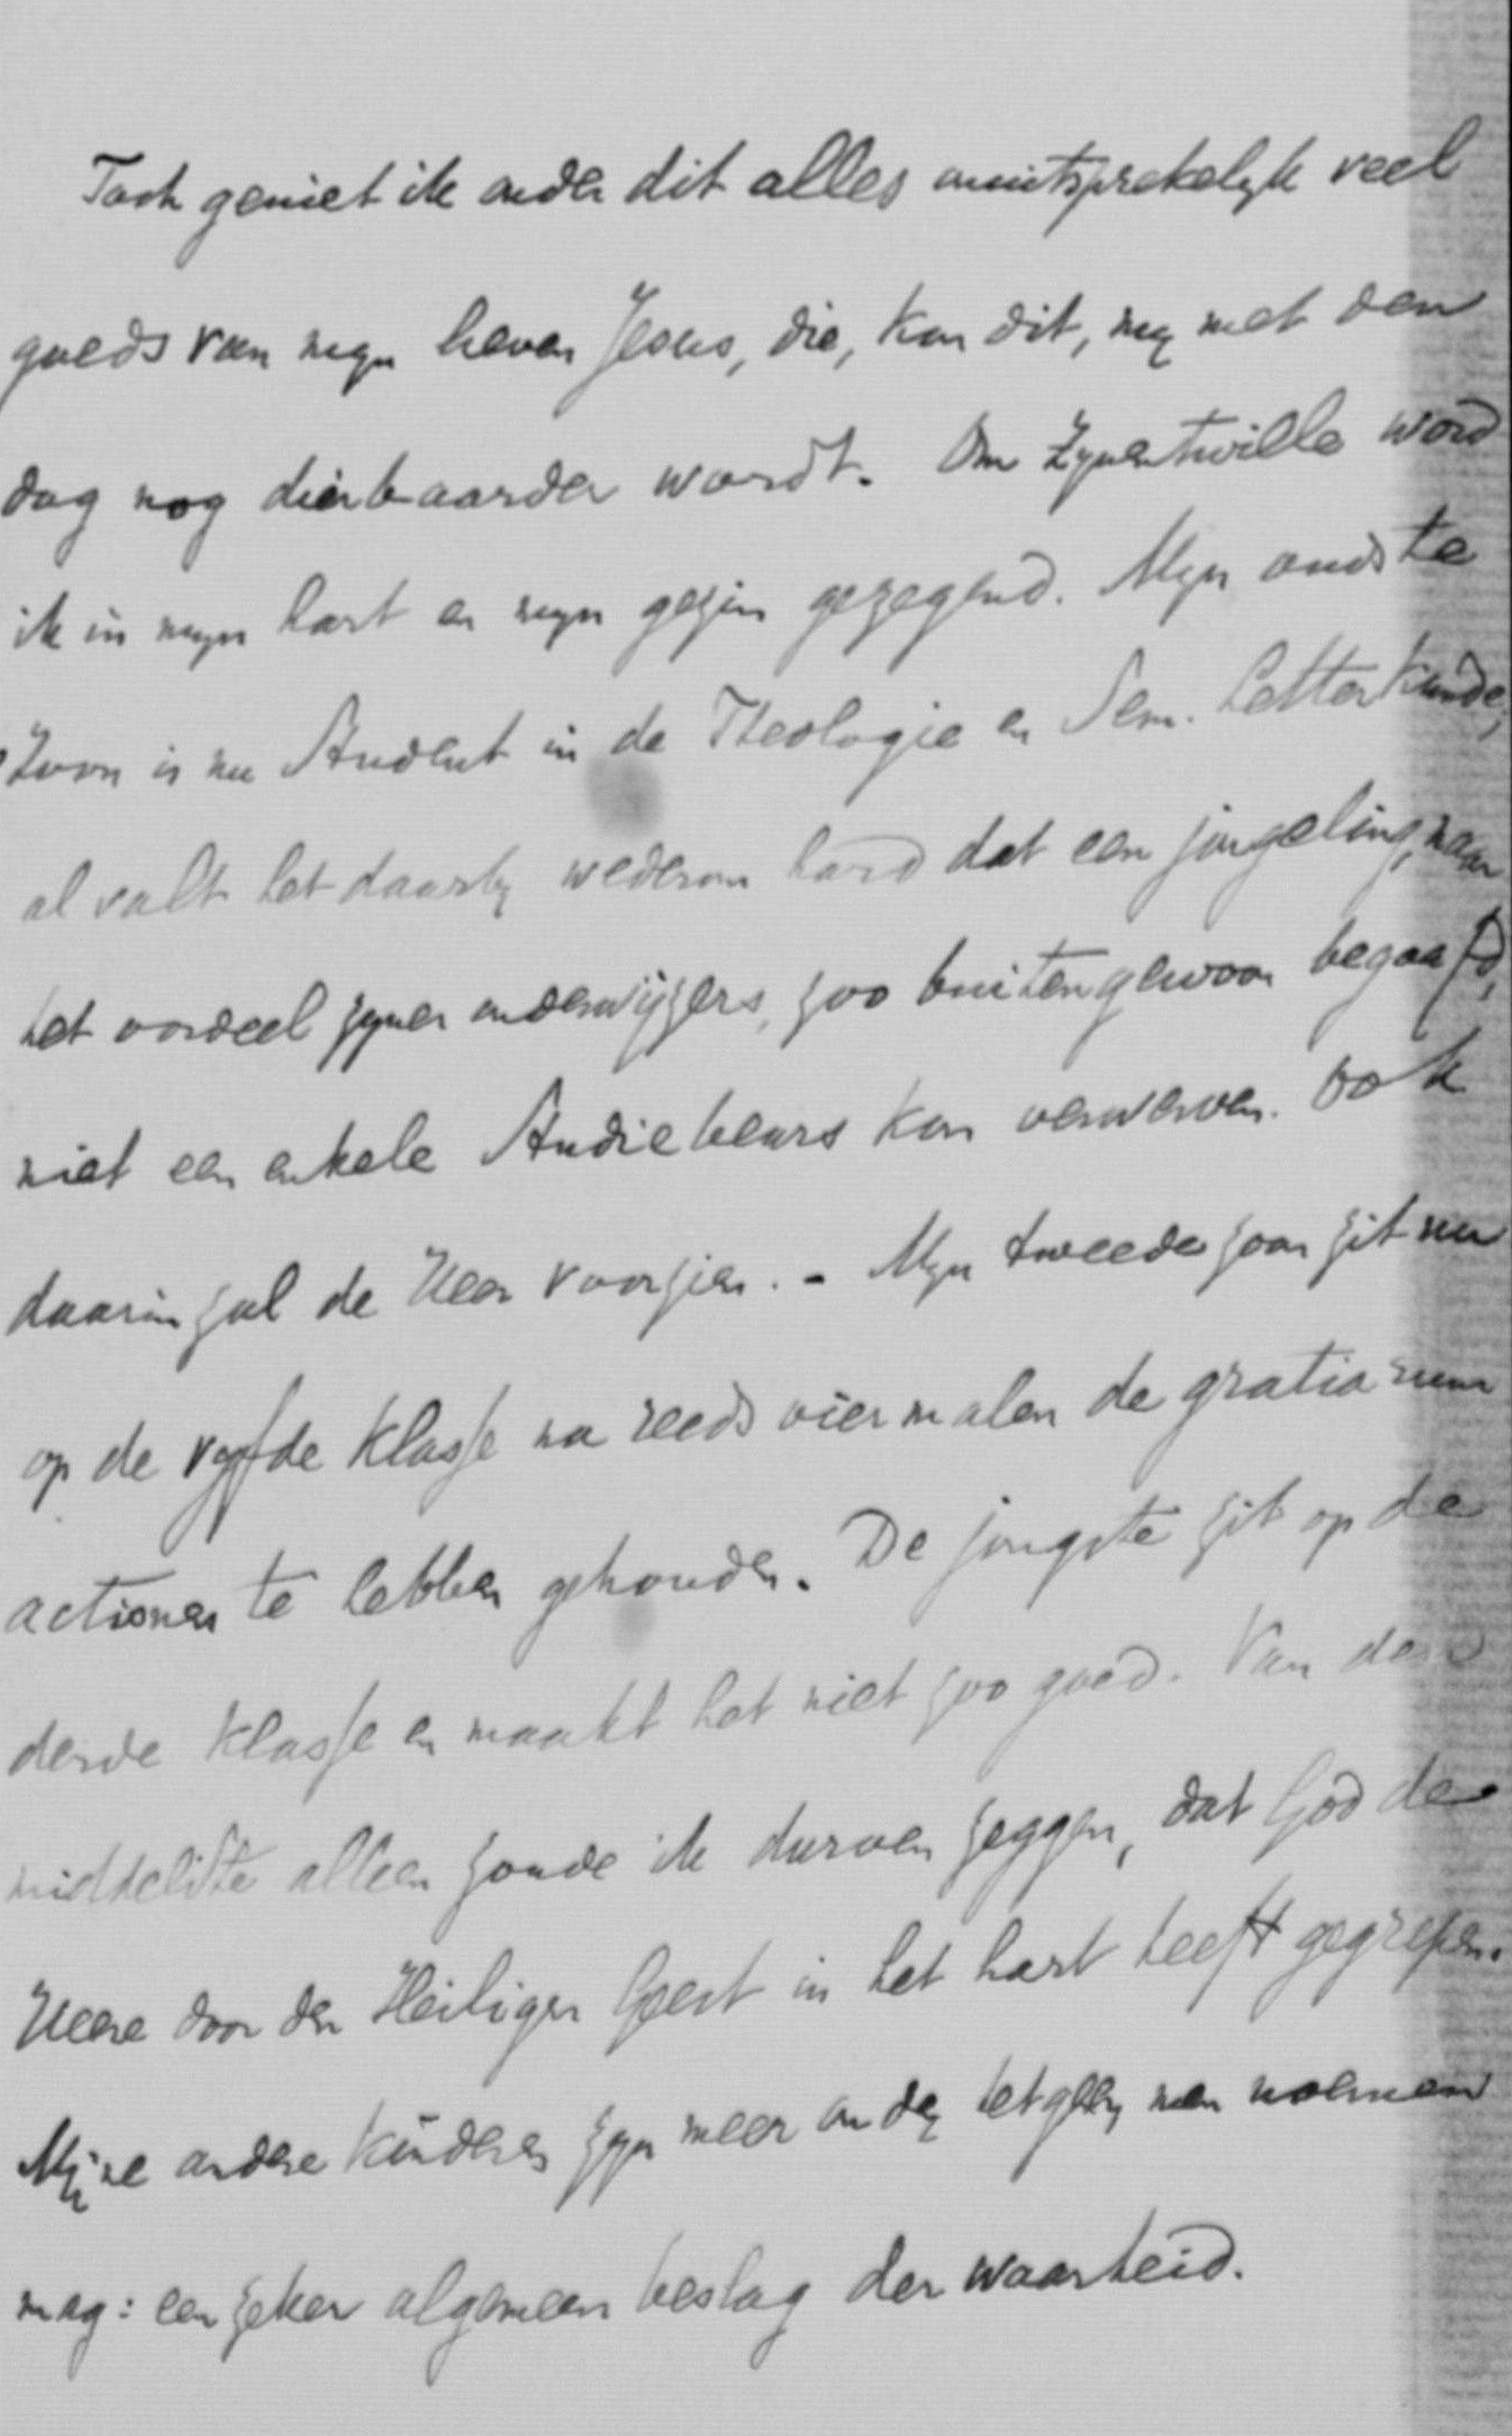 Toch geniet ik onder dit alles onuitsprekelyk veel
goeds van myn lieven Jesus, die, kan dit, my met den
dag nog dierbaarder wordt. Om Zynentwille word
ik in myn hart en myn gezin gezegend. Myn oudste
Zoon is nu Student in de Theologie en Sem. Letterkunde,
al valt het daarby wederom hard dat een jongeling, naar
het oordeel zyner onderwijzers, zoo buitengewoon begaafd,
niet een enkele Studiebeurs kan verwerven. Ook
daarin zal de Heer voorzien. - Myn tweede zoon zit nu
op de vyfde klasse na reeds viermalen de gratiarum
actiones te hebben gehouden. De jongste zit op de
derde klasse en maakt het niet zoo goed. Van den
middelste alleen zoude ik durven zeggen, dat God de
Heere door den Heiligen Geest in het hart heeft gegrepen.
Mijne andere kinderen zyn meer onder hetgeen men noemen
mag: een zeker algemeen beslag der waarheid.